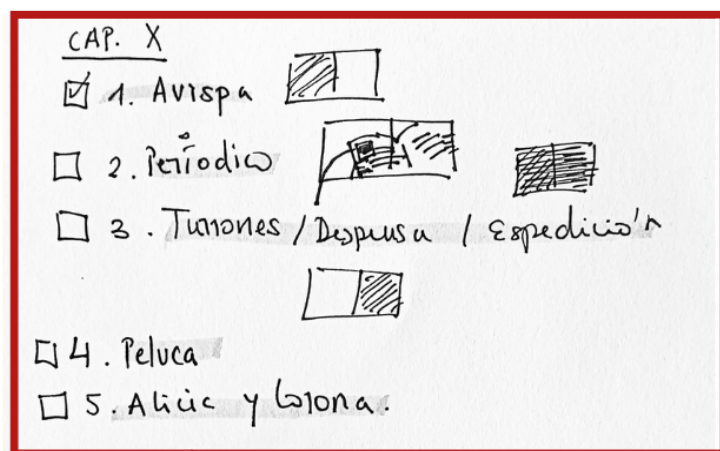 CAP. X
1. Avispa
2. Períodico
3. Turrones / Despensa / Espedición
4. Peluca
5. Alicia y Corona.